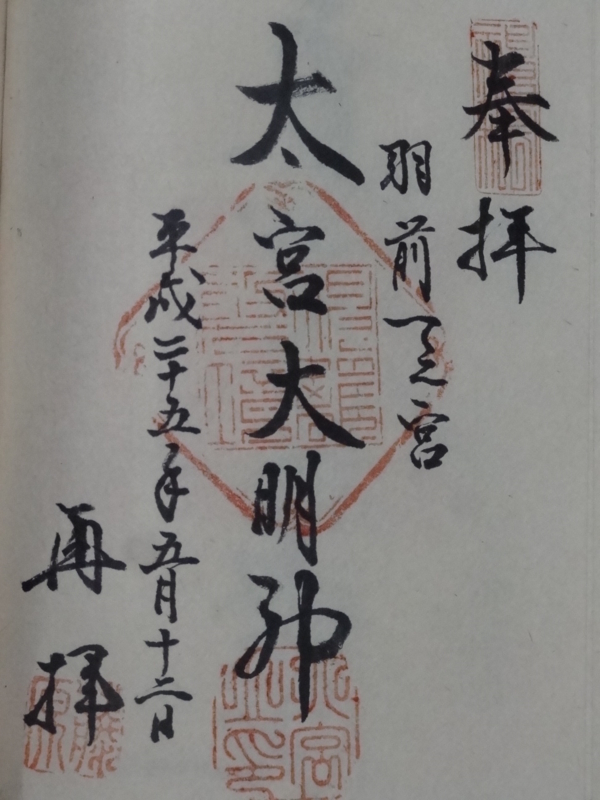 奉拝
羽前一之宮
太宮大明神
平成二十五年五月十二日
再拝